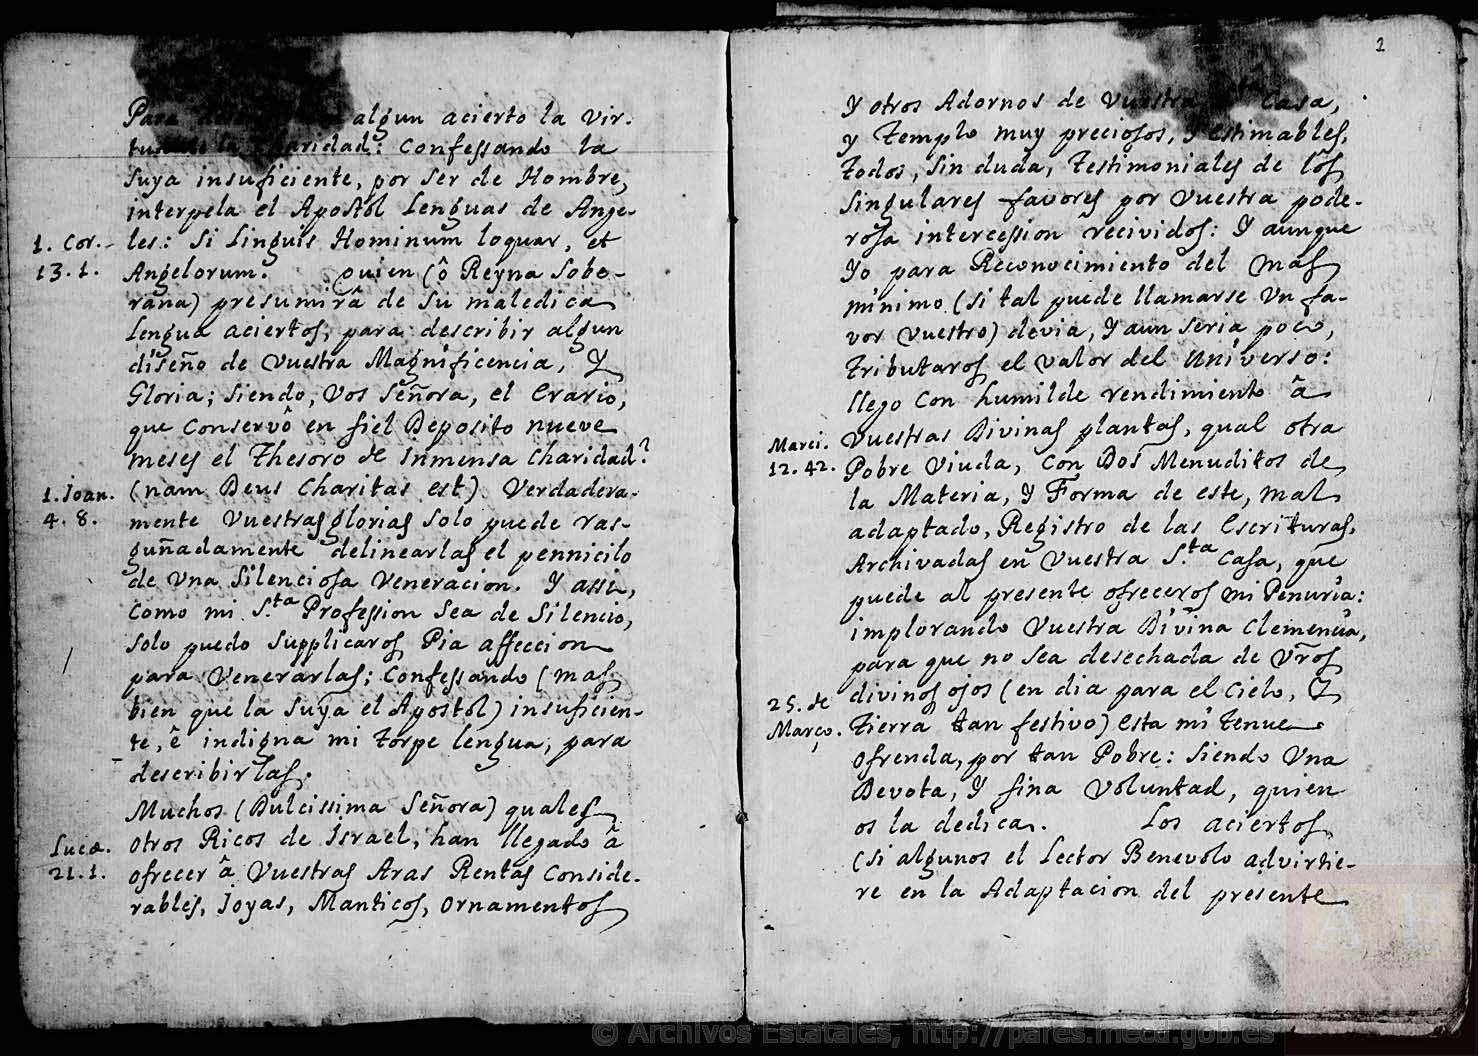 Para algun acierto la Vir-
tud de la Charidad: Confessando la
suya insuficiente, por ser de Hombre,
interpela el Apostol Lenguas de Ange-
1. Cor. les: Si Linguis Hominum loquar, et
13. 1. Angelorum. Quien (ô Reyna Sobe-
rana) presumirâ de su maledica
Lengua aciertos, para describir algun
diseño de Vuestra Magnificencia, Y
Gloria; siendo, Vos Señora, el Erario,
que Conservô en fiel Deposito nueve
meses el Thesoro de inmensa Charidad?
1. Joan. (nam Deus Charitas est) Verdadera-
4. 8. mente Vuestras glorias solo puede ras-
guñadamente delinearlas el pennicilo
de Vna Silenciosa Veneracion. Y assi,
Como mi S.ta Profession sea de Silencio,
solo puedo Supplicaros Pia affeccion
para Venerarlas; Confessando (mas
bien que la suya el Apostol) insuficien-
te, ê indigna mi torpe lengua, para
describirlas.
Muchos (Dulcissima Señora) quales
Lucæ. otros Ricos de Israel, han llegado â
21. 1. ofrecer â Vuestras Aras Rentas Conside-
rables, Joyas, Manticos, Ornamentos
2
Y otros Adornos de Vuestra Casa,
y Templo muy preciosos, y estimables,
todos, sin duda, Testimoniales de los
Singulares favores por Vuestra pode-
rosa intercession recividos: Y aunque
Yo para Reconocimiento del mas
minimo (si tal puede llamarse Vn fa-
vor Vuestro) devia, Y aun seria poco,
Tributaros el valor del Universo:
llego Con humilde rendimiento â
Marci. Vuestras Divinas plantas, qual otra
12. 42. Pobre Viuda, Con Dos Menuditos de
la Materia, Y Forma de este, mal
adaptado, Registro de las Escrituras,
Archivadas en Vuestra S.ta Casa, que
puede al presente ofreceros mi Penuria:
implorando Vuestra Divina Clemencia,
para que no sea desechada de Vros
25. de divinos ojos (en dia para el Cielo, Y
Março. Tierra tan festivo) esta mi tenue
ofrenda, por tan Pobre: siendo Vna
Devota, Y fina Voluntad, quien
os la dedica. Los aciertos
(si algunos el Lector Benevolo advirtie-
re en la Adaptacion del presente
© Archivos Estatales, http://pares.mecd.gob.es